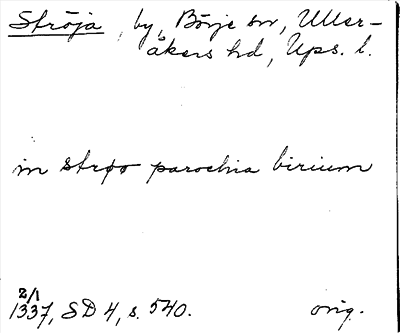 Ströja, by, Börje sn, Uller-
åkers hd, Ups. l.
in strøo parochia birium
2/1
1337, SD 4, s. 540. orig.